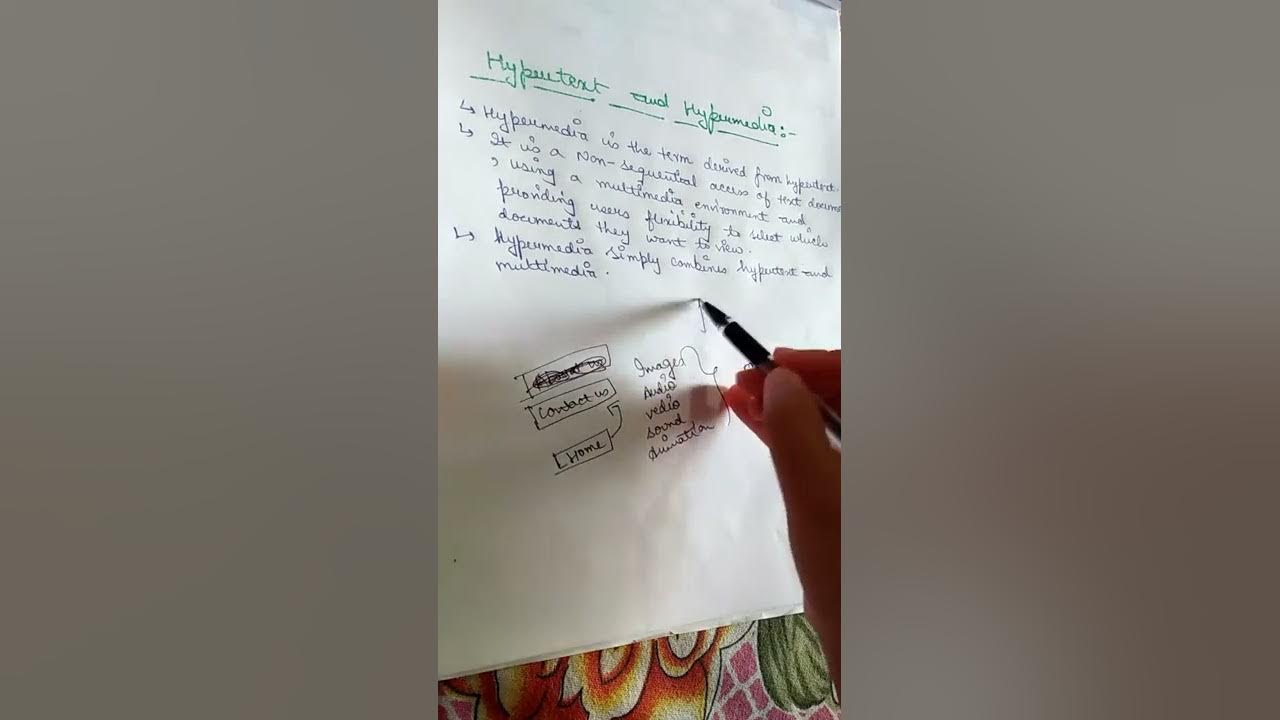 Hypertext and Hypermedia:-
↳ Hypermedia is the term derived from hypertext.
↳ It is a Non-sequential access of text docume
, using a multimedia environment and
providing users flexibility to select which
documents they want to view.
↳ Hypermedia simply combines hypertext and
multimedia.
Images
Audio
Contact us
vedio
sound
Home